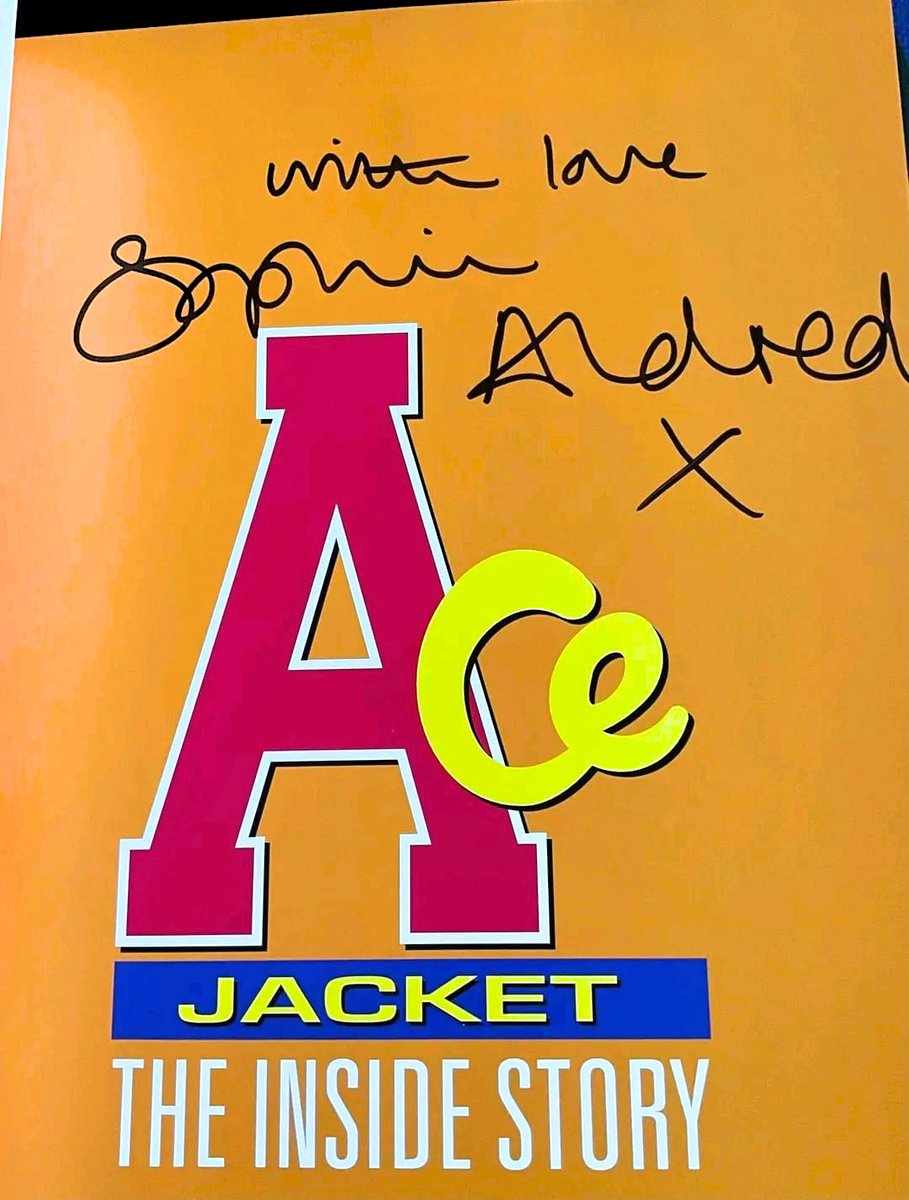 with love
Sophie
Aldred
X
Ace
JACKET
THE INSIDE STORY